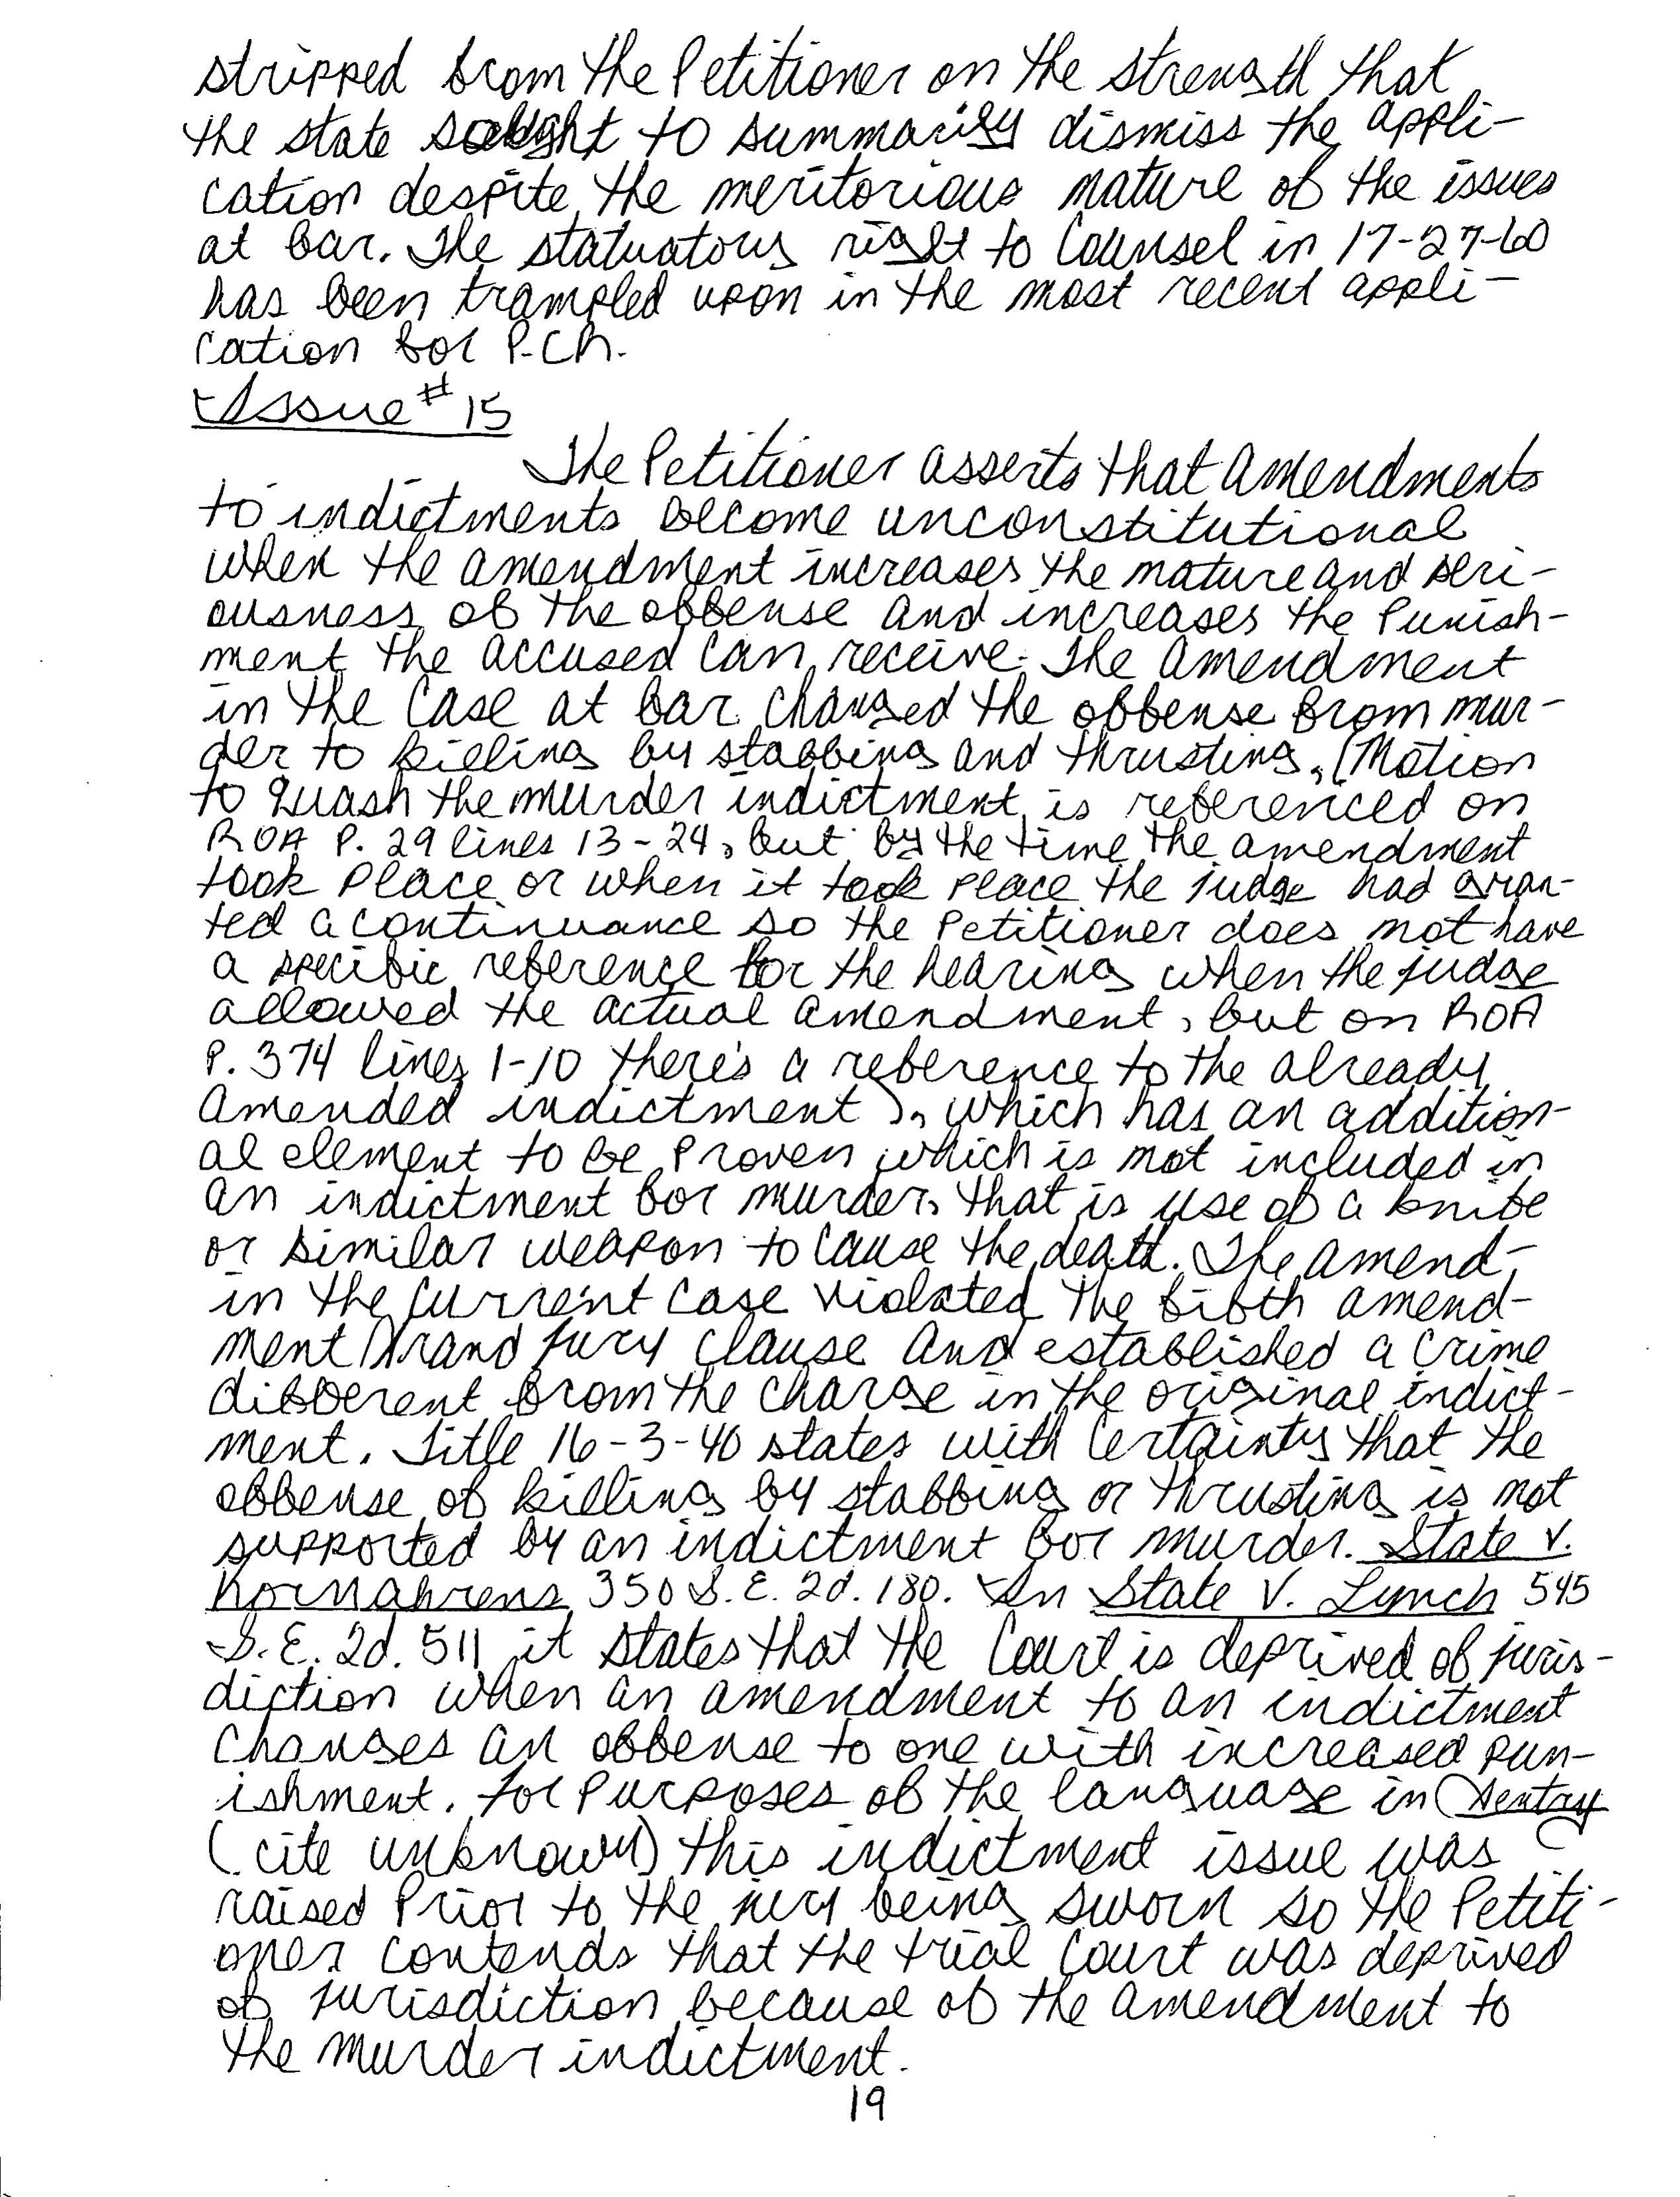 stripped from the Petitioner on the strength that
the state sought to summarily dismiss the appli-
cation despite the meritorious nature of the issues
at bar. The statuatory right to Counsel in 17-27-60
has been trampled upon in the most recent appli-
cation for P.C.R.
Issue # 15
The Petitioner asserts that amendments
to indictments become unconstitutional
when the amendment increases the nature and seri-
ousness of the offense and increases the Punish-
ment the accused can receive. The amendment
in the case at bar changed the offense from mur-
der to killing by stabbing and thrusting, (Motion
to quash the murder indictment is referenced on
ROA P. 29 lines 13-24, but by the time the amendment
took place or when it took place the judge had gran-
ted a continuance so the Petitioner does not have
a specific reference for the hearing when the judge
allowed the actual amendment, but on ROA
P. 374 lines 1-10 there's a reference to the already
amended indictment), which has an addition-
al element to be proven which is not included in
an indictment for murder, that is use of a knife
or similar weapon to cause the death. The amend-
in the current case violated the fifth amend-
ment Grand Jury Clause and established a crime
different from the charge in the original indict-
ment. Title 16-3-40 states with certainty that the
offense of killing by stabbing or thrusting is not
supported by an indictment for murder. State v.
Kornahrens, 350 S.E. 2d. 180. In State V. Lynch 545
S.E. 2d. 511 it states that the Court is deprived of juris-
diction when an amendment to an indictment
changes an offense to one with increased pun-
ishment. For Purposes of the language in Gentry
(cite unknown) this indictment issue was
raised Prior to the jury being sworn so the Petiti-
oner contends that the trial court was deprived
of jurisdiction because of the amendment to
the murder indictment.
19